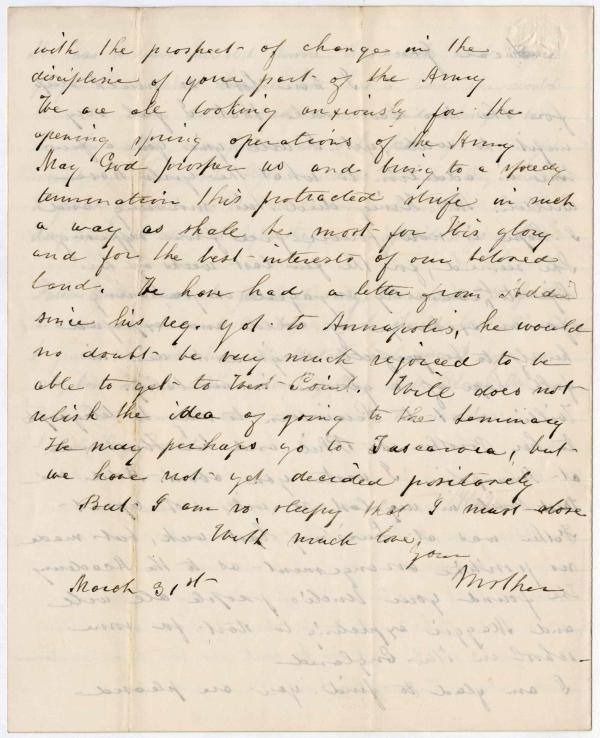 with the prospect of change in the
discipline of your part of the Army
We are all looking anxiously for the
opening spring operations of the Army
May God prosper us and bring to a speedy
termination this protracted strife in such
a way as shall be most for His glory
and for the best interests of our beloved
land. We have had a letter from
since his reg. got to Annapolis, he would
no doubt be very much rejoiced to be
able to get to West Point. Will does not
relish the idea of going to the Seminary
He may perhaps go to Tuscarora, but
we have not yet decided positively
But I am so sleepy that I must close
With much love,
your
Mother
March 31st